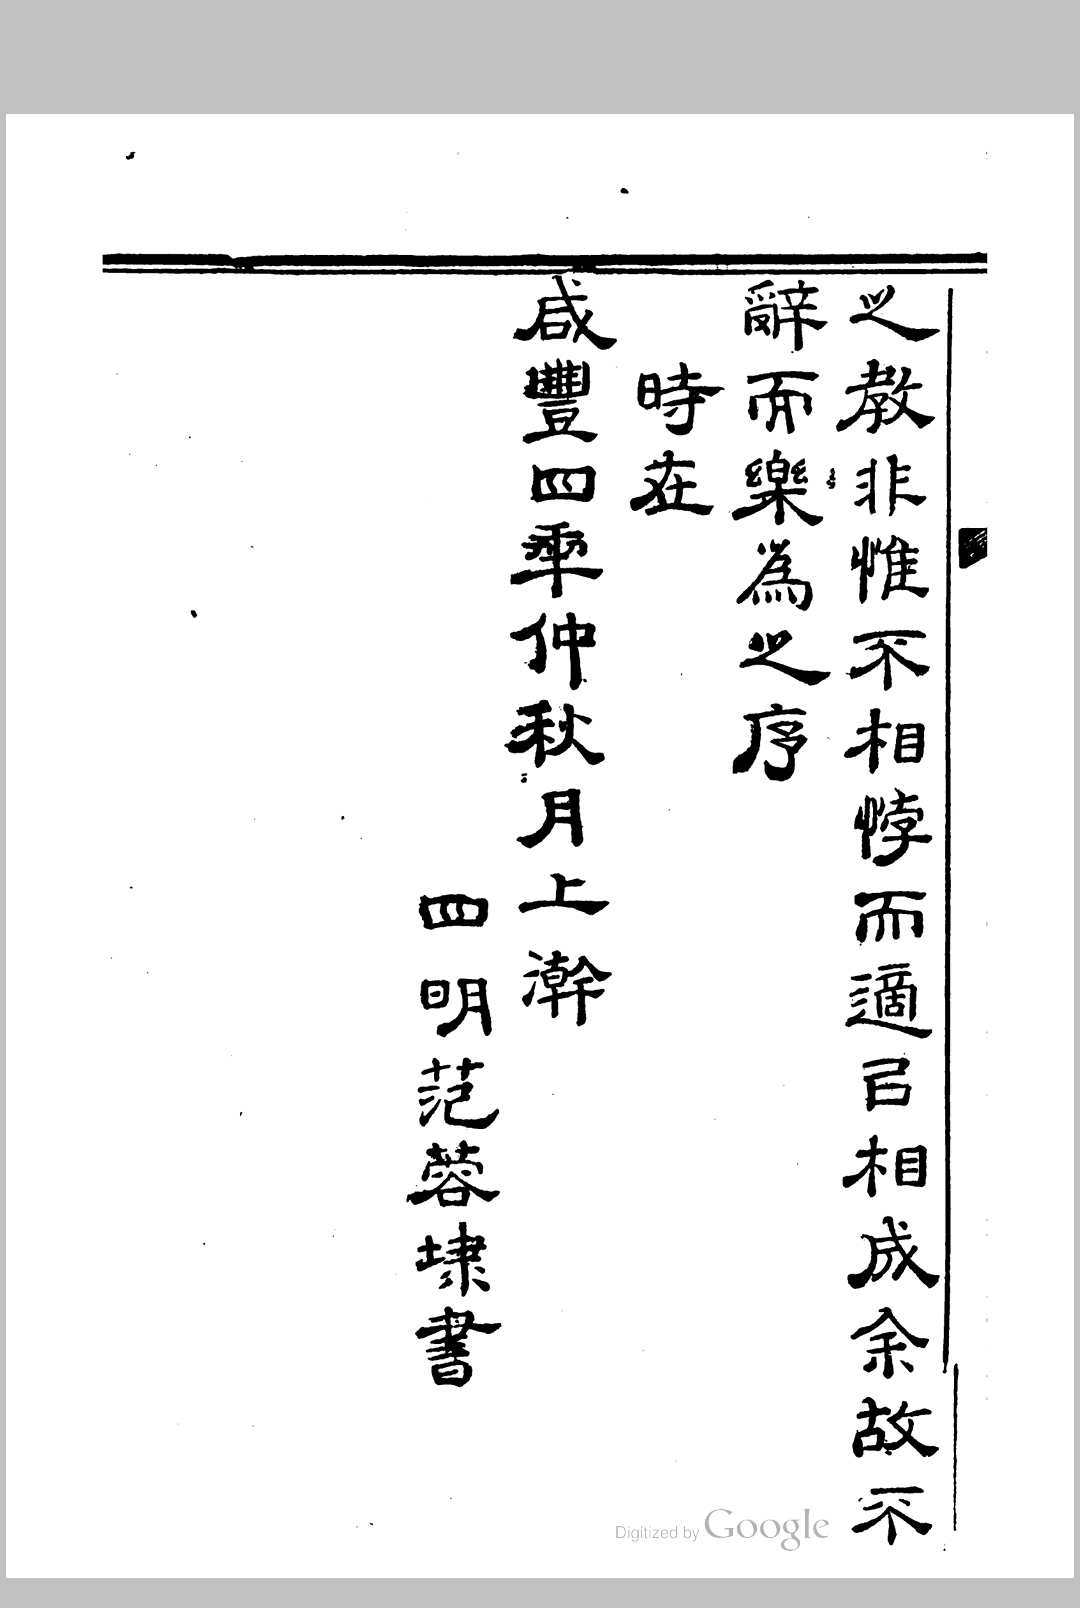 之教非惟不相悖而適㠯相成余故不
辭而樂為之序
時在
咸豐四年仲秋月上澣
四明范蓉埭書
Digitized by Google